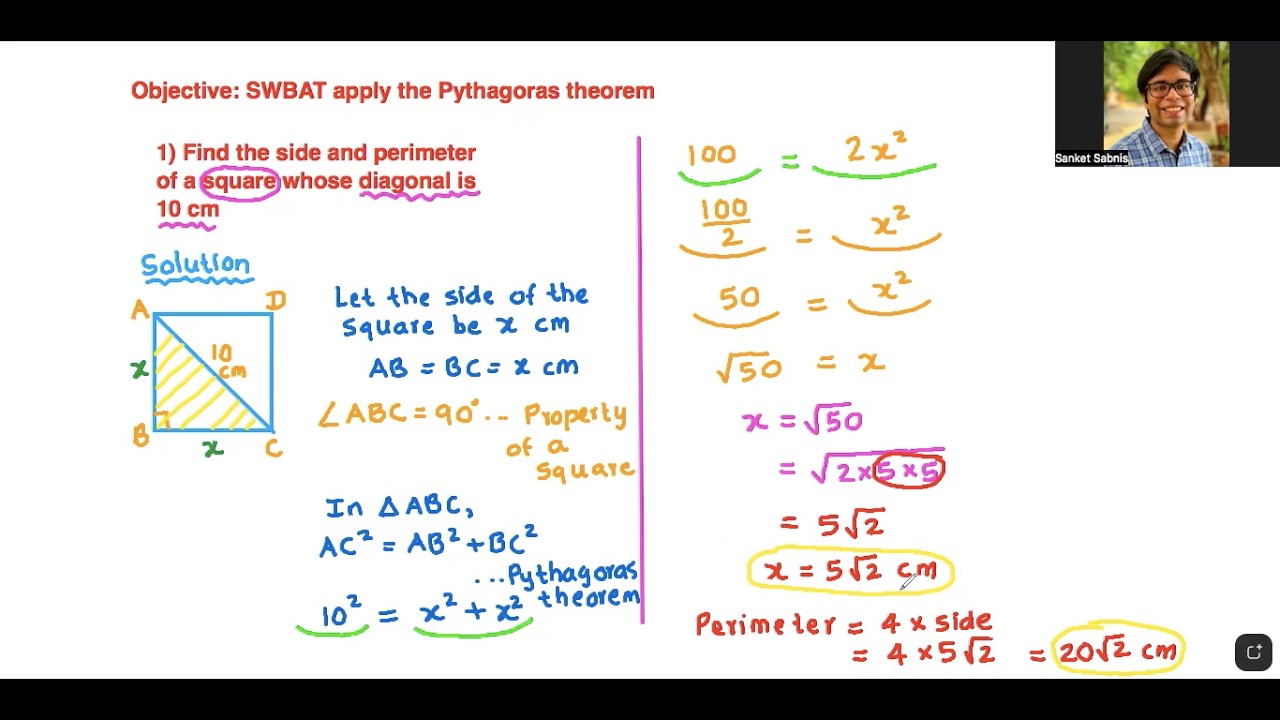 Objective: SWBAT apply the Pythagoras theorem
1) Find the side and perimeter
of a square whose diagonal is
10 cm
Solution
A
D
x
10
cm
B
x
C
Let the side of the
square be x cm
AB = BC = x cm
∠ABC = 90° ... Property
of a
square
In △ABC,
AC² = AB² + BC²
...Pythagoras
theorem
10² = x² + x²
100 = 2x²
100/2 = x²
50 = x²
√50 = x
x = √50
= √2×5×5
= 5√2
x = 5√2 cm
Perimeter = 4 × side
= 4 × 5√2 = 20√2 cm
Sanket Sabnis